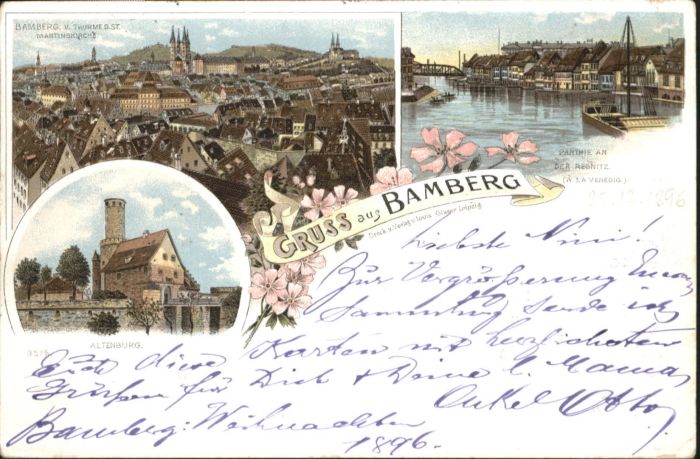 BAMBERG. V. THURME D. ST.
MARTINSKIRCHE
PARTHIE AN
DER REGNITZ.
(À LA VENEDIG.)
GRUSS aus BAMBERG
Druck u. Verlag v. Louis Glaser Leipzig
25.12.1896
ALTENBURG.
Liebste Nini!
Zur Vergrößerung
Sammlung sende ich
Euch diese Karten mit herzlichsten
Grüßen für Dich & Deine l. Mama
Onkel Otto
Bamberg: Weihnachten
1896.